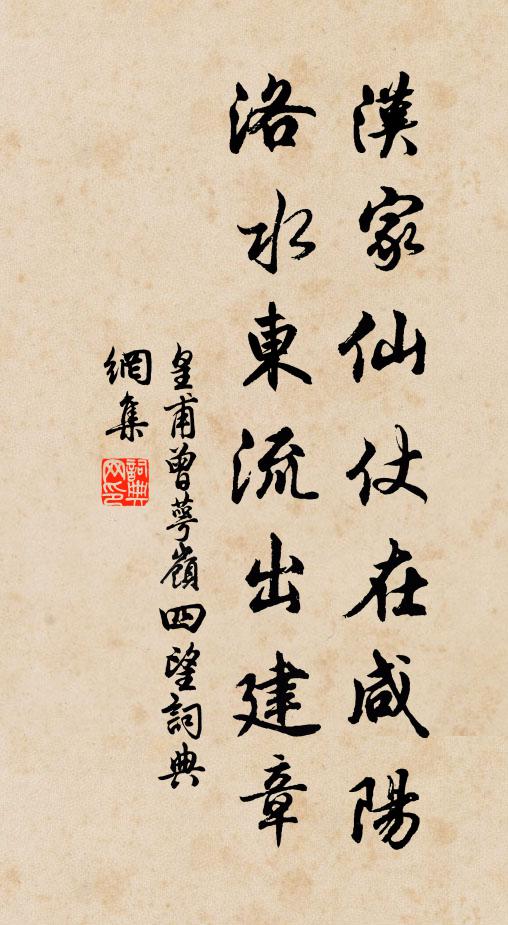 漢家仙仗在咸陽
洛水東流出建章
皇甫曾萼嶺四望詞典
網集
詞典網印